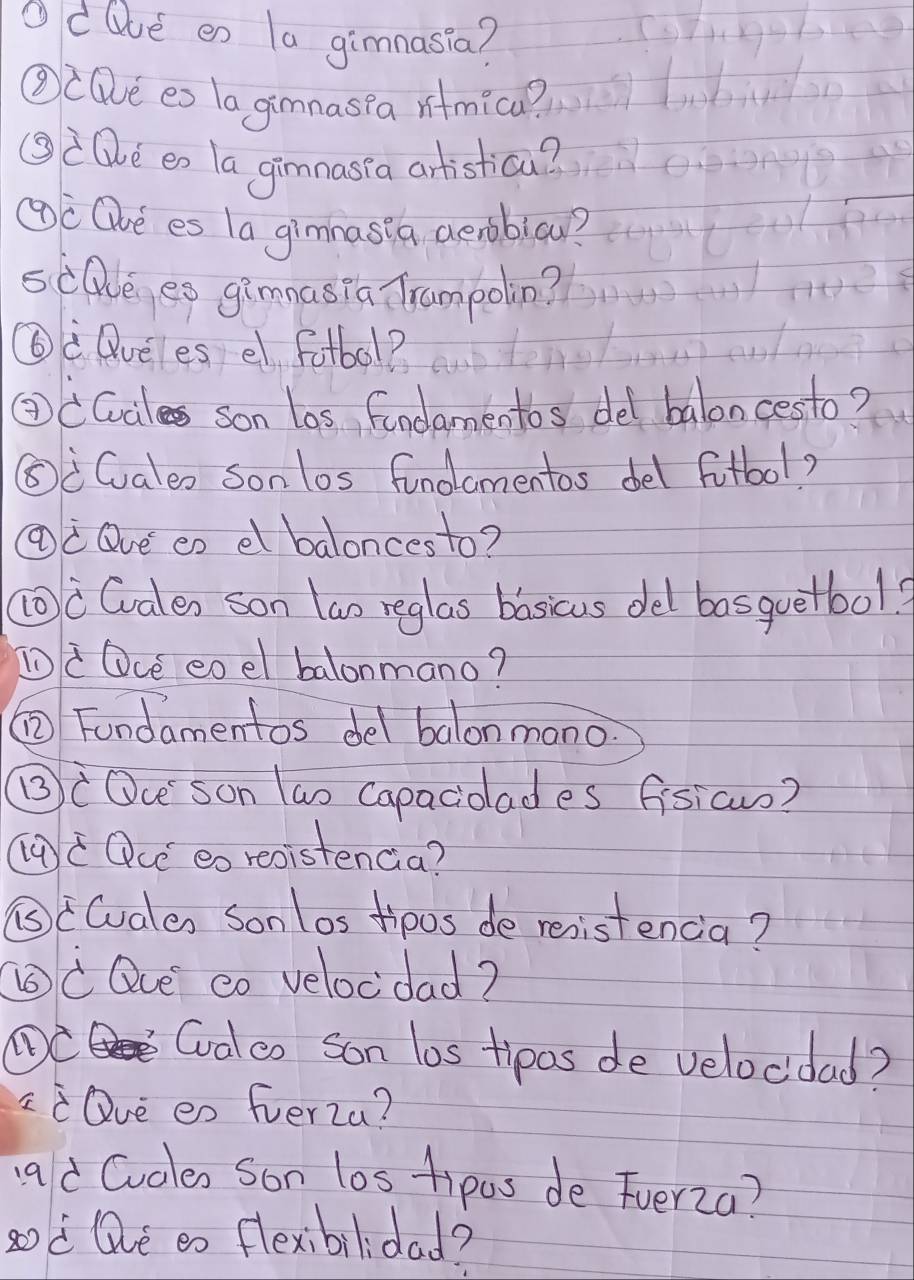 ① ¿Qué es la gimnasia?
② ¿Qué es la gimnasia ritmica?
③ ¿Qué es la gimnasia artistica?
④ ¿Qué es la gimnasia aerobica?
5 ¿Qué es gimnasia Trampolin?
⑥ ¿Qué es el futbol?
⑦ ¿Cuáles son los fundamentos del baloncesto?
⑧ ¿Cuales son los fundamentos del futbol?
⑨ ¿Qué es el baloncesto?
⑩ ¿Cuales son las reglas básicas del basquetbol?
⑪ ¿Qué es el balonmano?
⑫ Fundamentos del balonmano.
⑬ ¿Qué son las capacidades fisicas?
⑭ ¿Qué es resistencia?
⑮ ¿Cuales son los tipos de resistencia?
⑯ ¿Qué es velocidad?
⑰ ¿Cuales son los tipos de velocidad?
¿Qué es fuerza?
19 ¿Cuales son los tipos de Fuerza?
20 ¿Qué es flexibilidad?